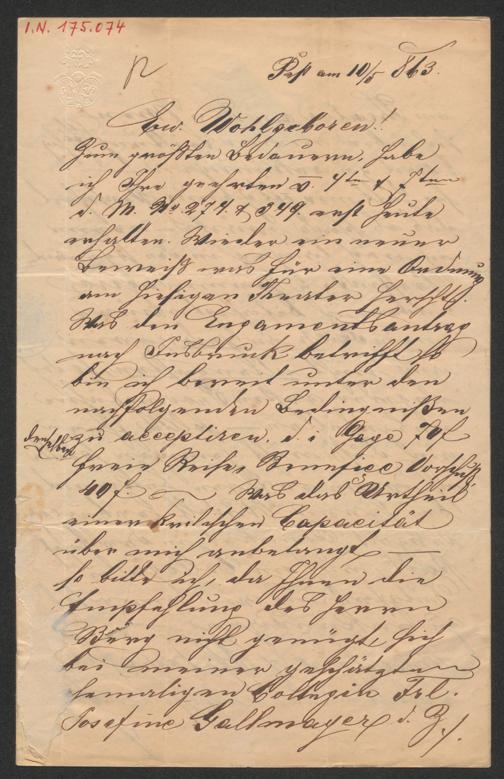 I.N. 175.074
Pest am 10/5 863.
Euer Wohlgeboren!
Zum größten Bedauern, habe
ich Ihre geehrten v. 4ten & 7ten
d. M. No 274 & 349. erst heute
erhalten. Wieder ein neuer
Beweiß was für eine Ordnung
am hiesigen Theater herscht.
Was den Engamentsantrag
nach Insbruck betrifft so
bin ich bereit unter den
nachfolgenden Bedingnißen
denselben zu acceptiren. d. i Gage 70f
freie Reise, Benefice Vorschuß
40f. — Was das Urtheil
einer kritischen Capacität
über mich anbelangt —
so bitte ich, da Ihnen die
Empfehlung des Herrn
Bürg nicht genügt, sich
bei meiner geschätzten
ehemaligen Collegin Frl.
Josefine Gallmayer d. Z.